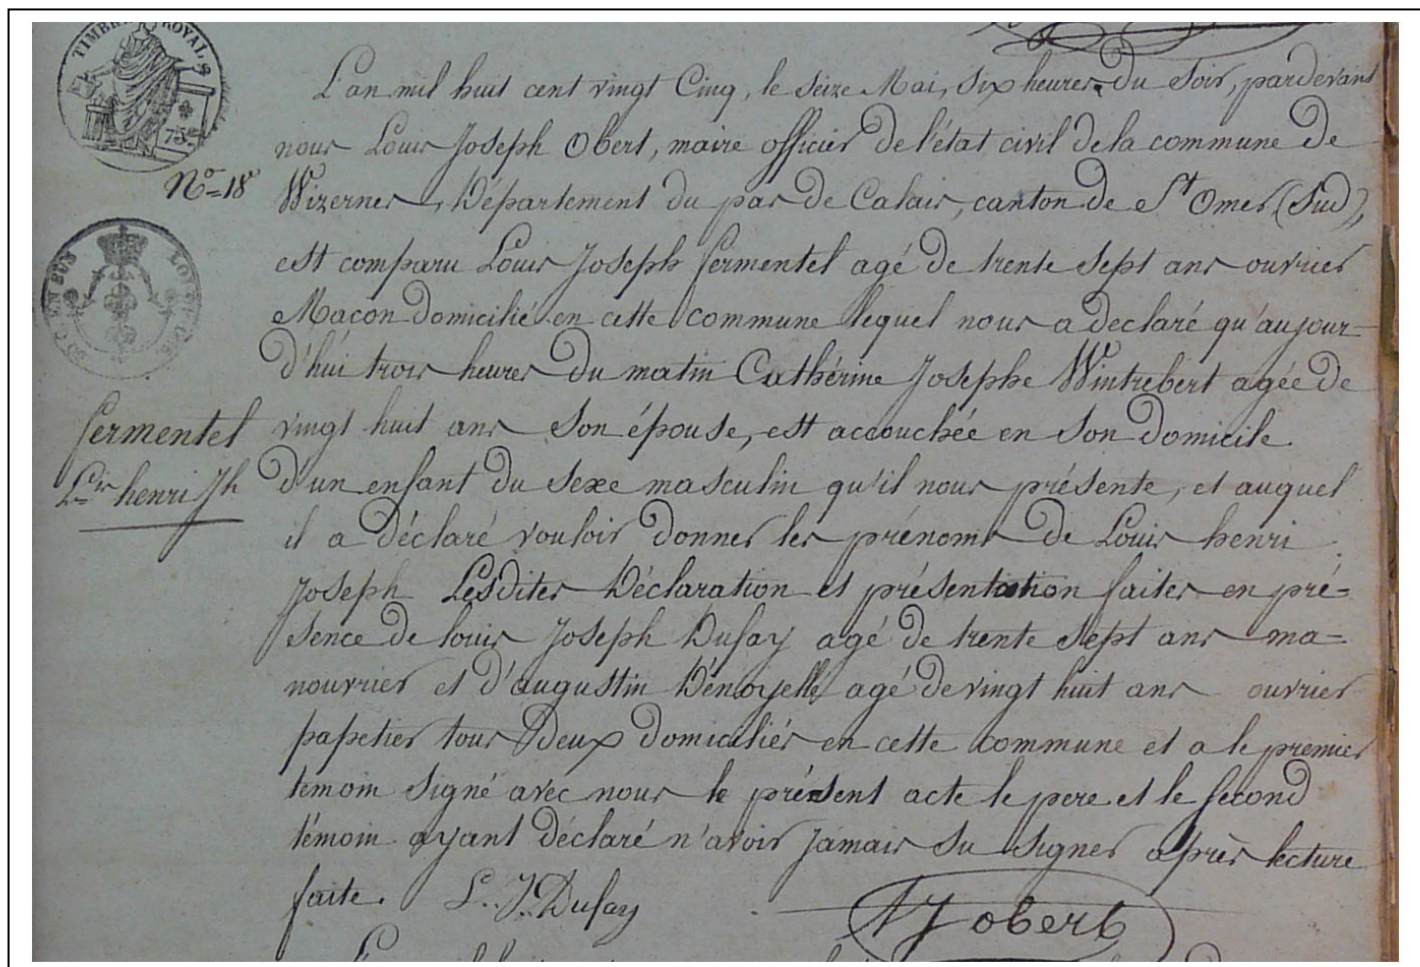 TIMBRE ROYAL
75c
L'an mil huit cent vingt Cinq, le seize Mai, six heures du Soir, pardevant
nous Louis Joseph Obert, maire officier de l'état civil dela commune de
No=18
Wizernes, Département du pas de Calais, canton de St Omer (Sud),
est comparu Louis Joseph fermentel agé de trente Sept ans ouvrier
Macon domicilié en cette commune lequel nous a declaré qu'aujour-
d'hui trois heures du matin Cathérine Josephe Wintrebert agée de
fermentel
vingt huit ans Son épouse, est accouchée en Son domicile
Ls henri Jh
d'un enfant du Sexe masculin qu'il nous présente, et auquel
il a déclaré vouloir donner les prénoms de Louis henri
Joseph Lesdites Déclaration et présentation faites en pré=
sence de louis Joseph Dufay agé de trente Sept ans ma=
nouvrier et d'augustin Dénoyelle agé de vingt huit ans ouvrier
papetier tous Deux domiciliés en cette commune et a le premier
témoin Signé avec nous le présent acte le pere et le Second
témoin ayant déclaré n'avoir Jamais Su Signer après lecture
faite. L. J. Dufay
LJ obert